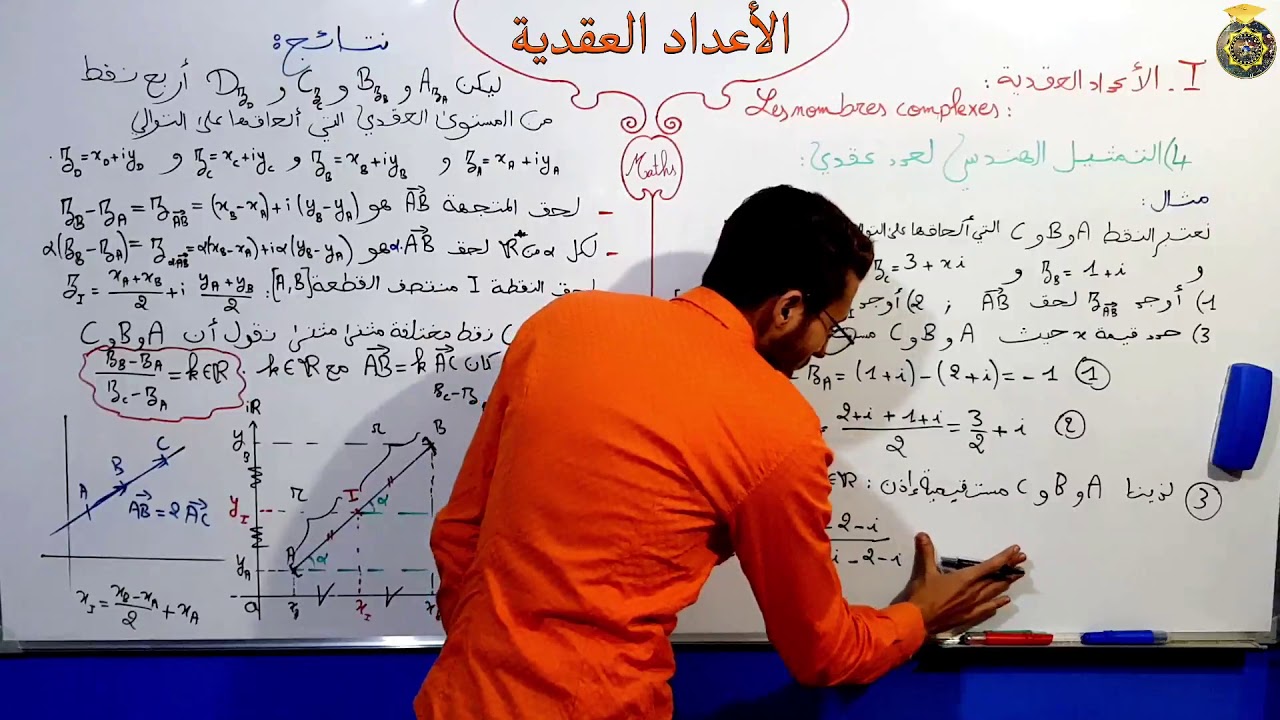 الأعداد العقدية
I. الأعداد العقدية:
Les nombres complexes:
4) التمثيل الهندسي لعدد عقدي:
مثال:
نعتبر النقط A و B و C التي ألحاقها على التوالي
و z_B = 1 + i و z_C = 3 + xi
1) أوجد z_{\vec{AB}} لحق \vec{AB} ; 2) أوجد
3) حدد قيمة x حيث A و B و C
z_A = (1+i) - (2+i) = -1 ①
= \frac{2+i+1+i}{2} = \frac{3}{2} + i ②
③ لدينا A و B و C مستقيمية إذن: ∈ ℝ
\frac{-2-i}{i-2-i}
Maths
نتائج:
ليكن A_{z_A} و B_{z_B} و C_{z_C} و D_{z_D} أربع نقط
من المستوى العقدي التي ألحاقها على التوالي
z_A = x_A + iy_A و z_B = x_B + iy_B و z_C = x_C + iy_C و z_D = x_D + iy_D.
- لحق المتجهة \vec{AB} هو z_B - z_A = z_{\vec{AB}} = (x_B - x_A) + i(y_B - y_A)
- لكل α من ℝ* لحق α.\vec{AB} هو α(z_B - z_A) = z_{α\vec{AB}} = α(x_B - x_A) + iα(y_B - y_A)
لحق النقطة I منتصف القطعة [A,B]: z_I = \frac{x_A + x_B}{2} + i \frac{y_A + y_B}{2}
نقط مختلفة مثنى مثنى نقول أن A و B و C
كان \vec{AB} = k \vec{AC} مع k ∈ ℝ. \frac{z_B - z_A}{z_C - z_A} = k ∈ ℝ
z_C - z_A
A B C
\vec{AB} = 2 \vec{AC}
x_I = \frac{x_B - x_A}{2} + x_A
iR
y_B
y_I
y_A
r r
A I B
α α
O x_I